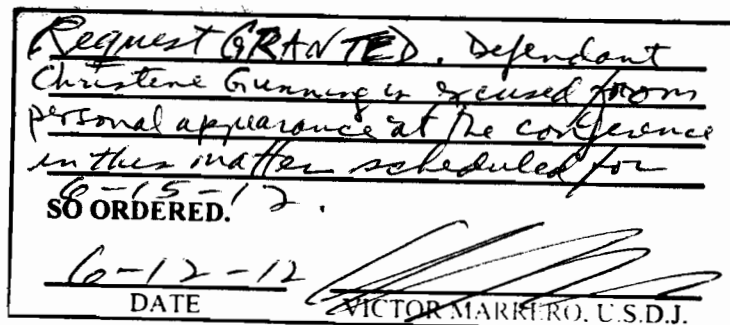 Request GRANTED. Defendant
Christine Gunning is excused from
personal appearance at the conference
in this matter scheduled for
6-15-12.
SO ORDERED.
6-12-12
DATE VICTOR MARRERO, U.S.D.J.